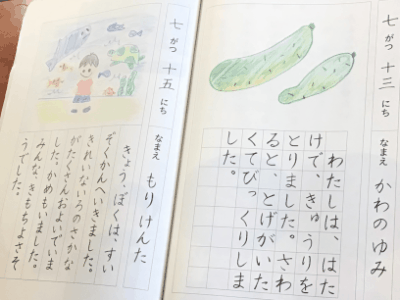 七がつ 十三にち なまえ かわのゆみ
わたしは、はた
けで、きゅうりを
とりました。さわ
ると、とげがいた
くてびっくりしま
した。
七がつ 十五にち なまえ もりけんた
きょう、ぼくは、すい
ぞくかんへいきました。
きれいないろのさかな
がたくさんおよいでいま
した。かめもいました。
みんな、きもちよさそ
うでした。